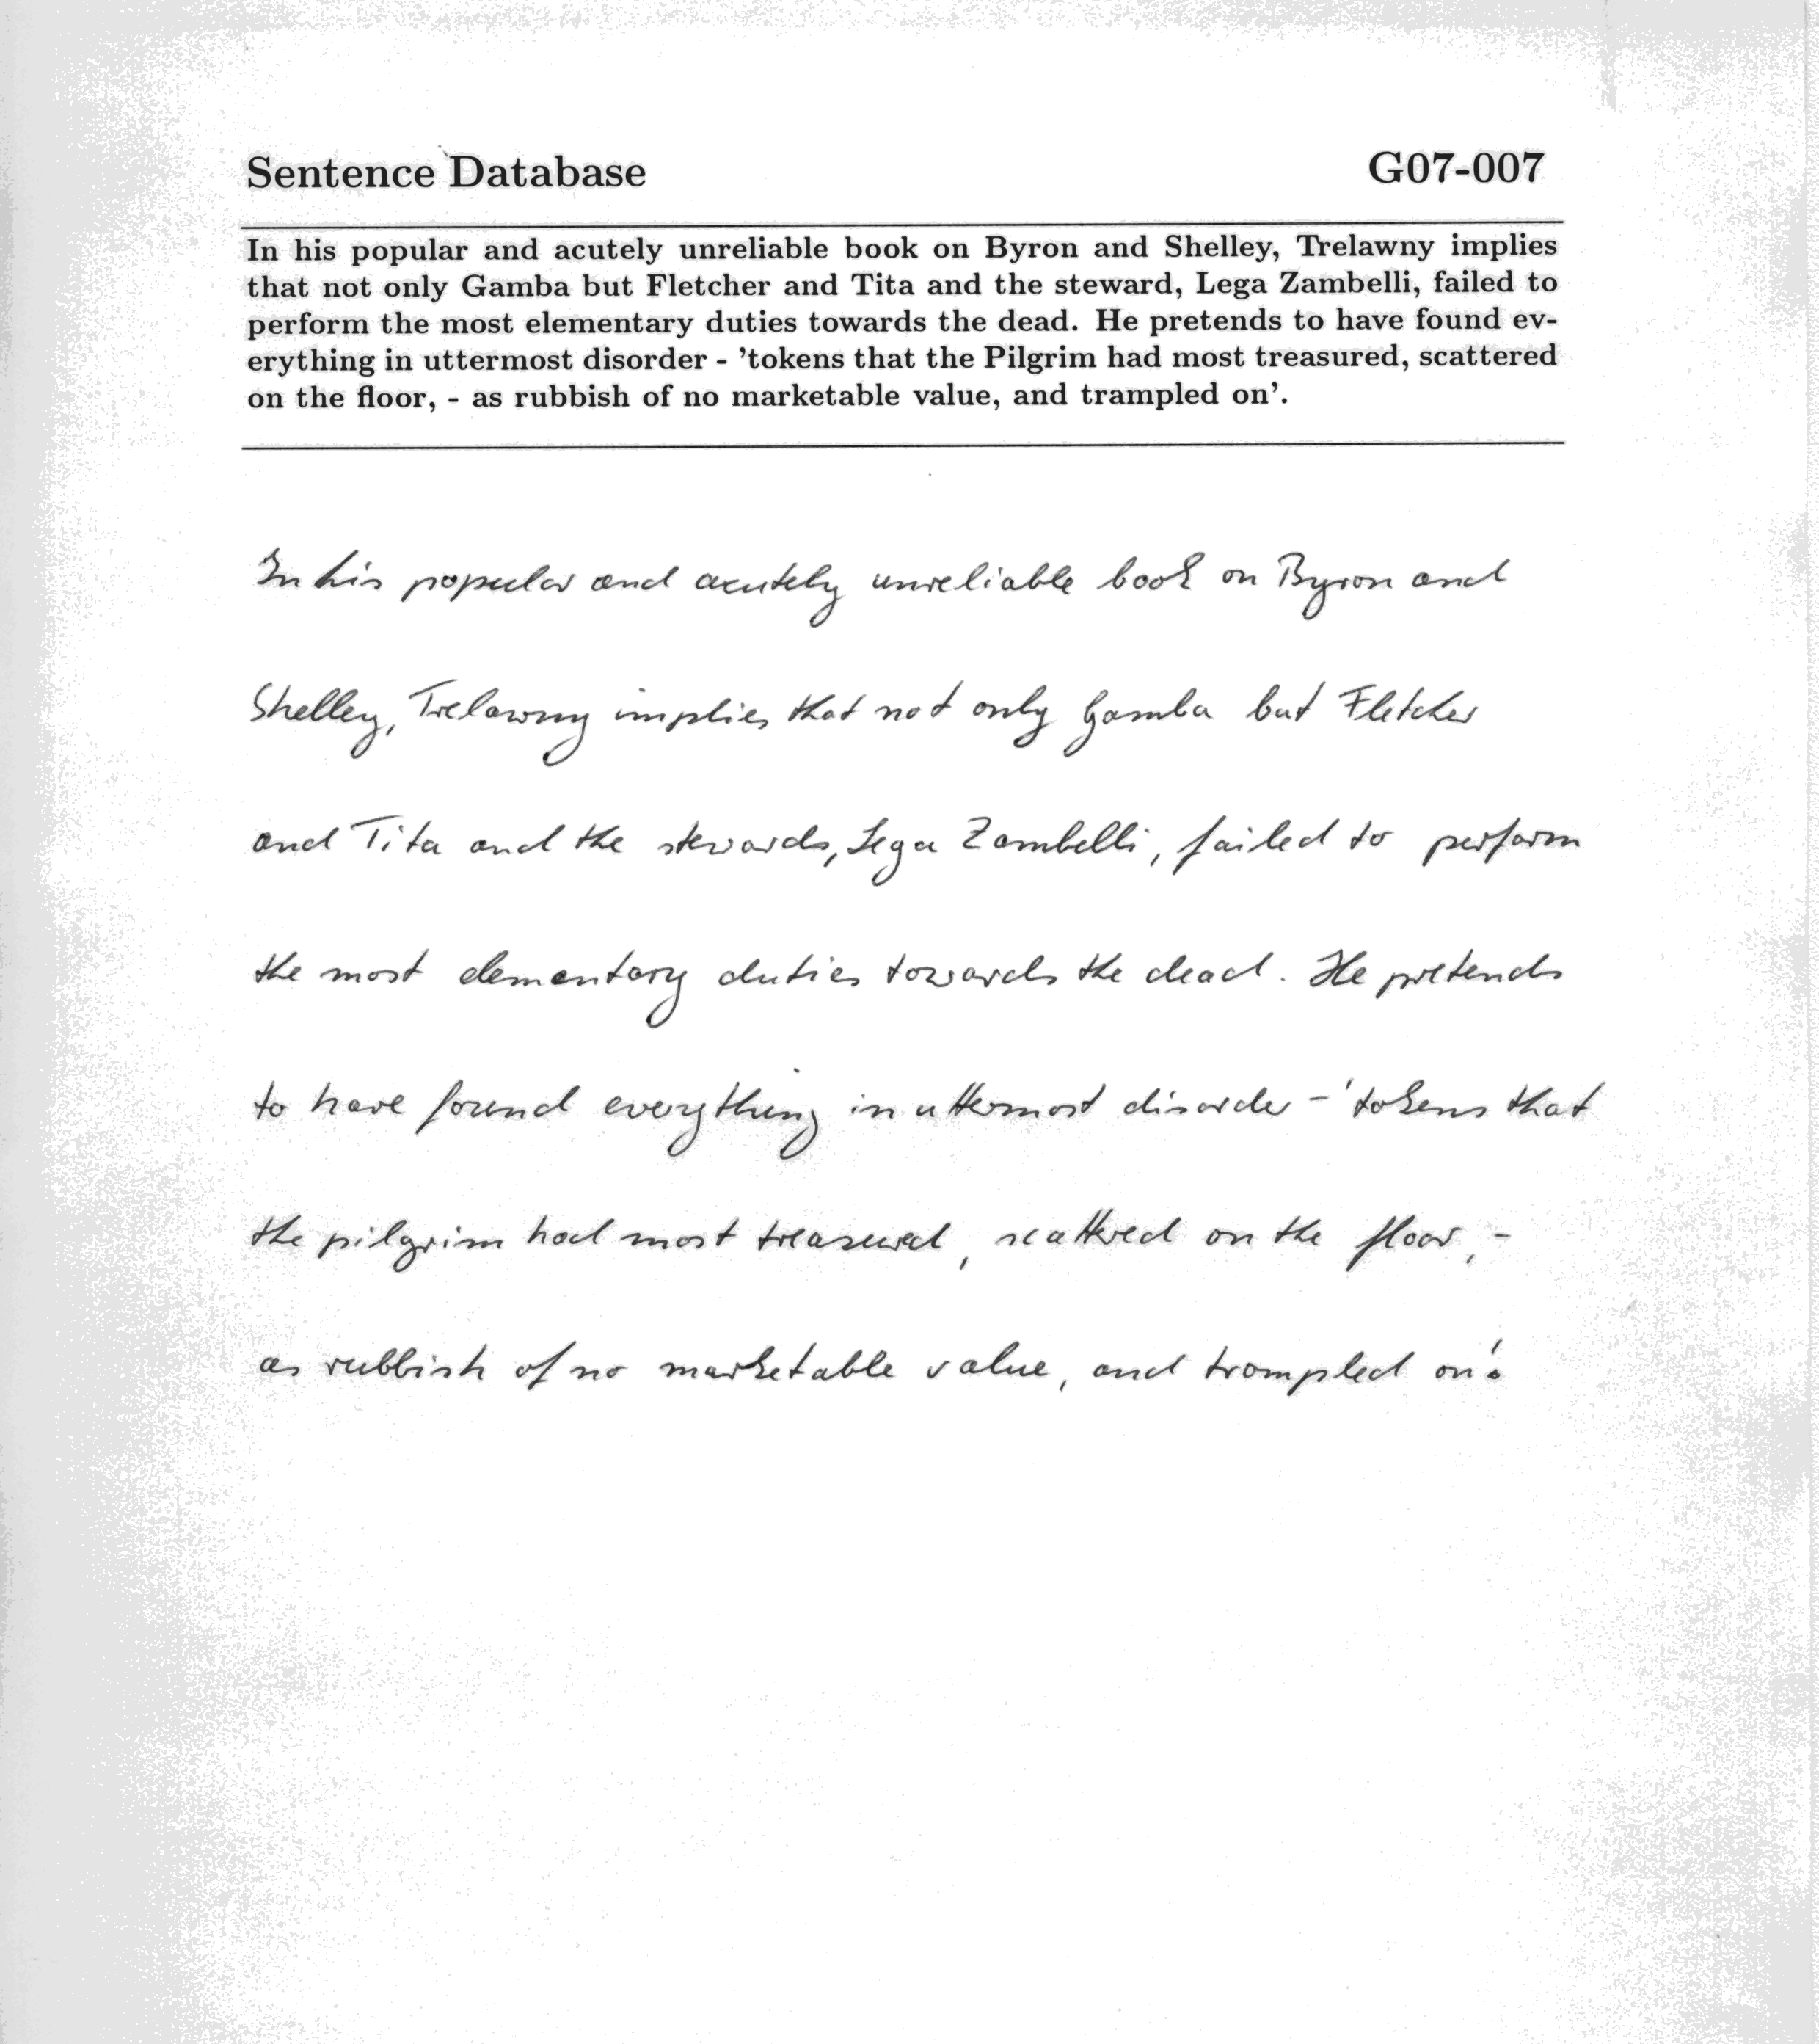 Sentence Database G07-007
In his popular and acutely unreliable book on Byron and Shelley, Trelawny implies
that not only Gamba but Fletcher and Tita and the steward, Lega Zambelli, failed to
perform the most elementary duties towards the dead. He pretends to have found ev-
erything in uttermost disorder - 'tokens that the Pilgrim had most treasured, scattered
on the floor, - as rubbish of no marketable value, and trampled on'.
In his popular and acutely unreliable book on Byron and
Shelley, Trelawny implies that not only Gamba but Fletcher
and Tita and the stewards, Lega Zambelli, failed to perform
the most elementary duties towards the dead. He pretends
to have found everything in uttermost disorder - 'tokens that
the pilgrim had most treasured, scattered on the floor, -
as rubbish of no marketable value, and trampled on'.